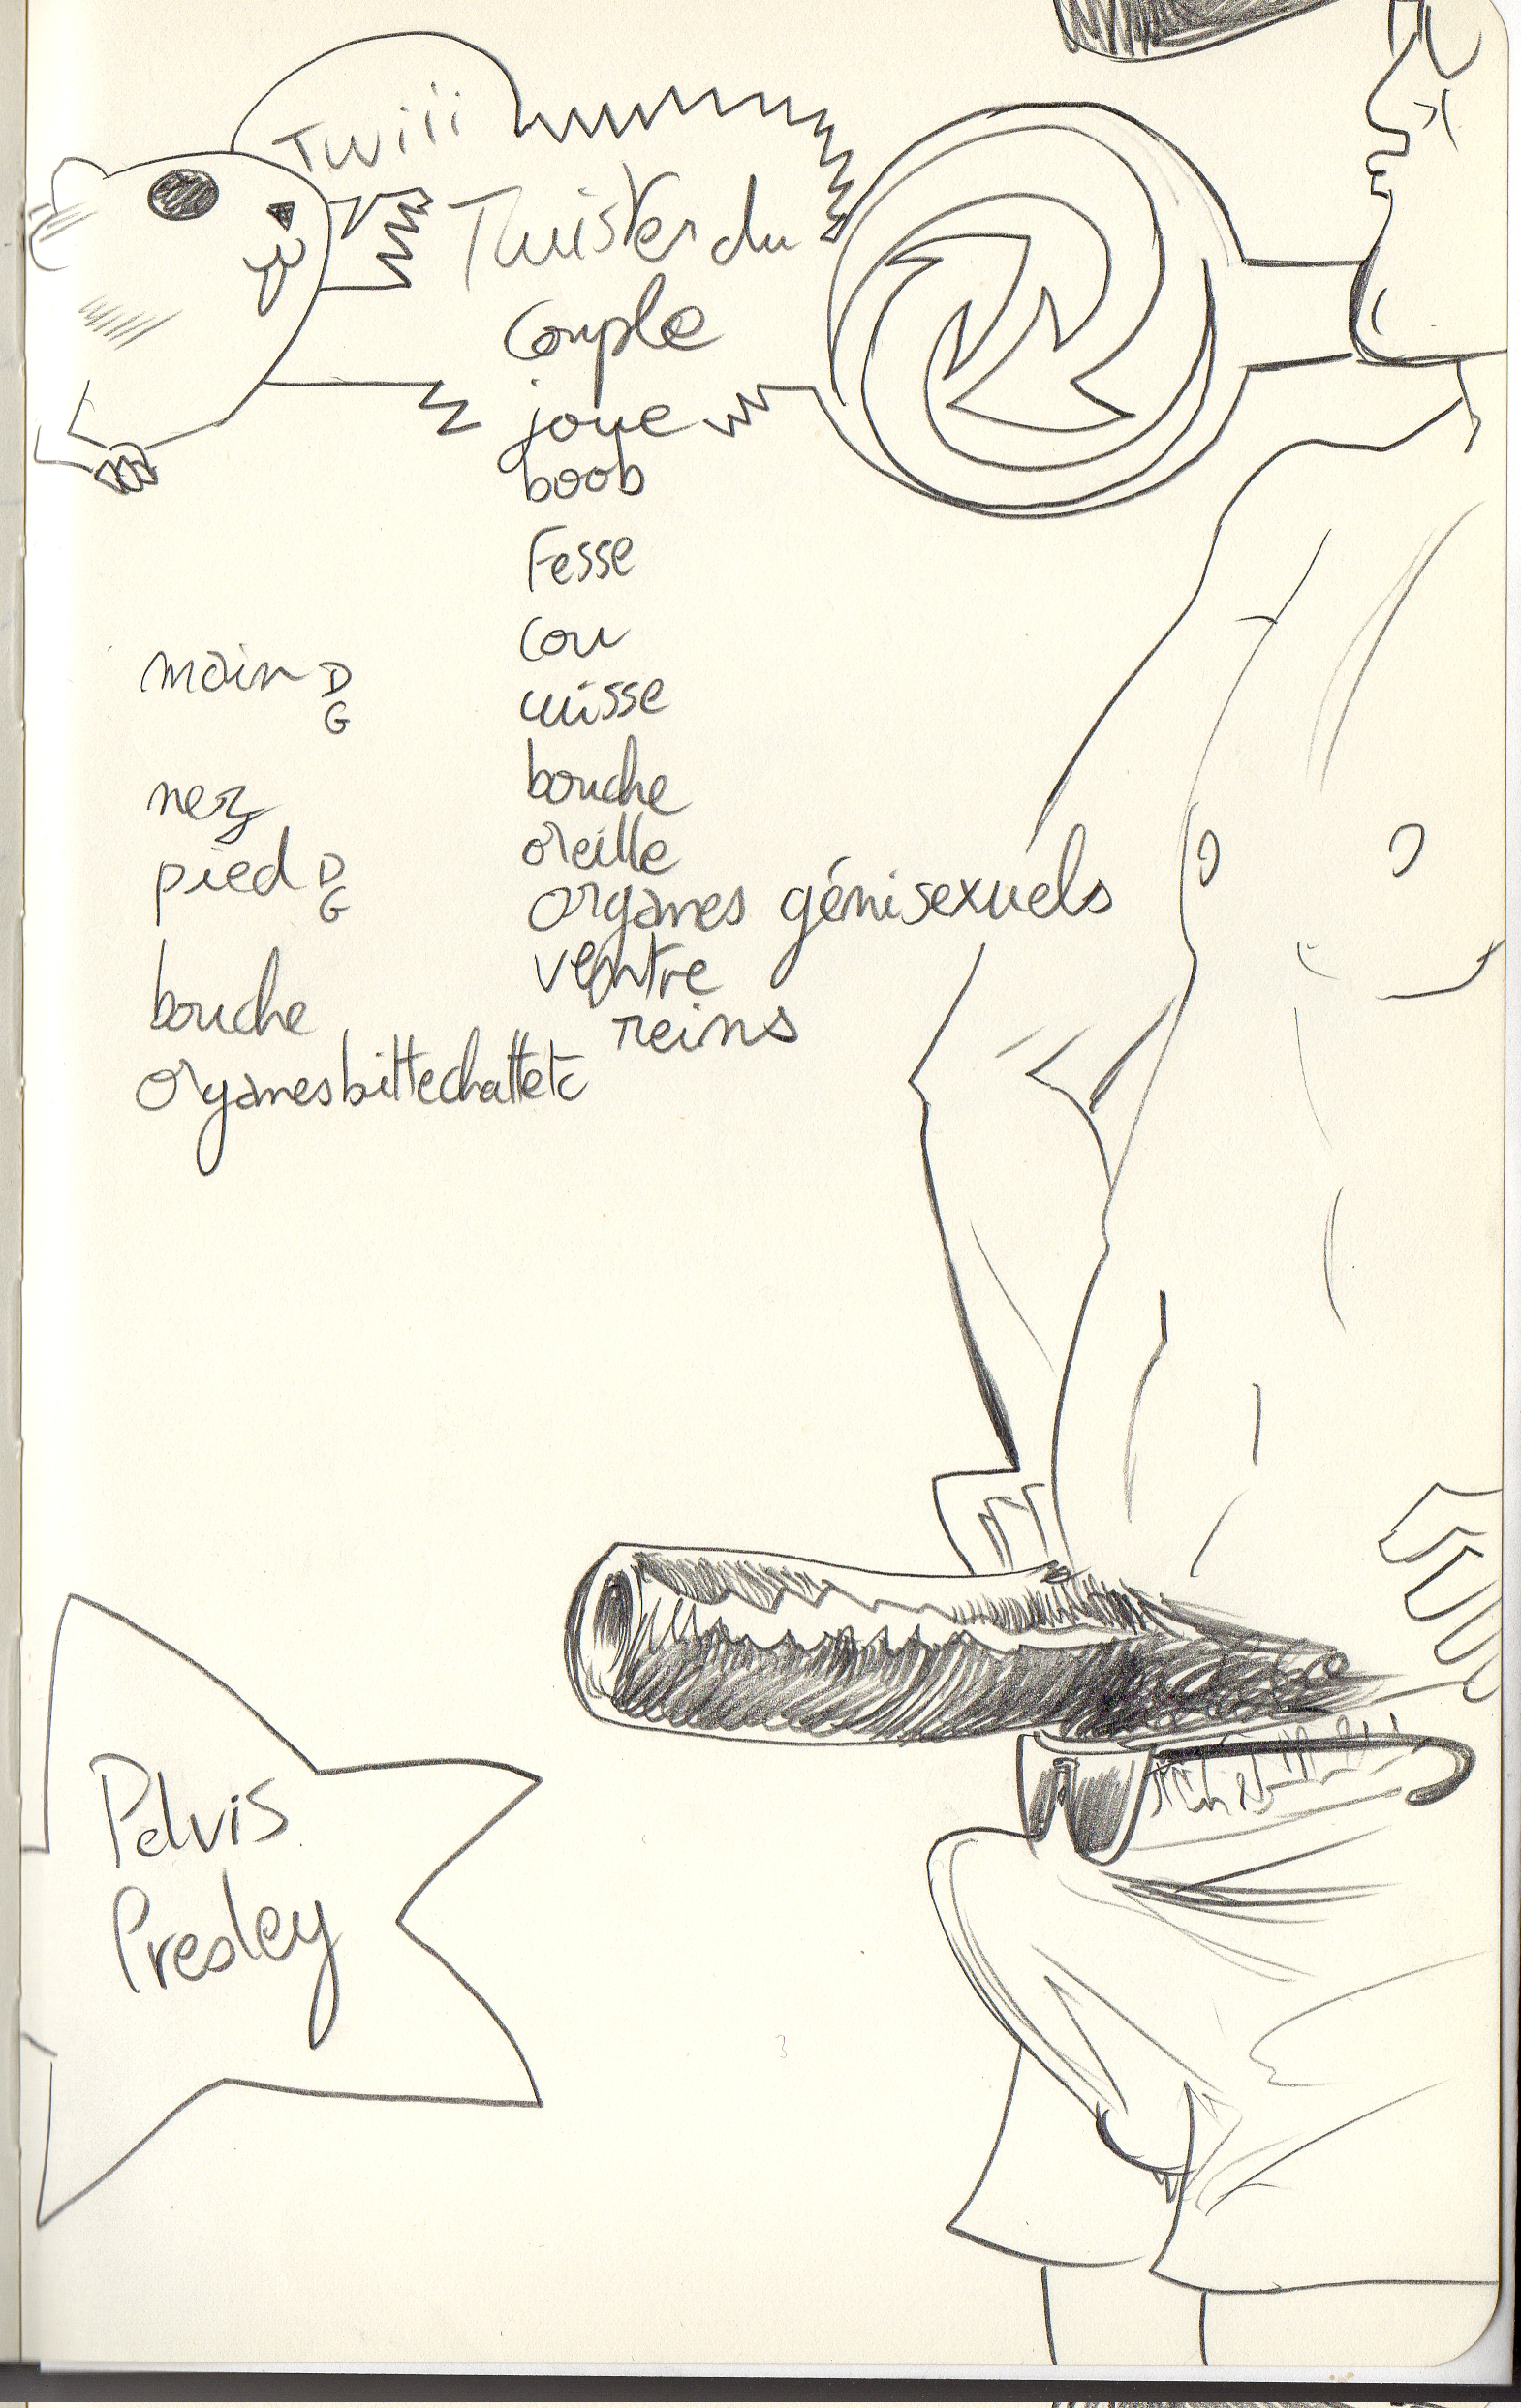 Twiii
Twister du
couple
joue
boob
Fesse
cou
cuisse
bouche
oreille
organes génisexuels
ventre
reins
main D
G
nez
pied D
G
bouche
organesbittechattetc
Pelvis
Presley
3